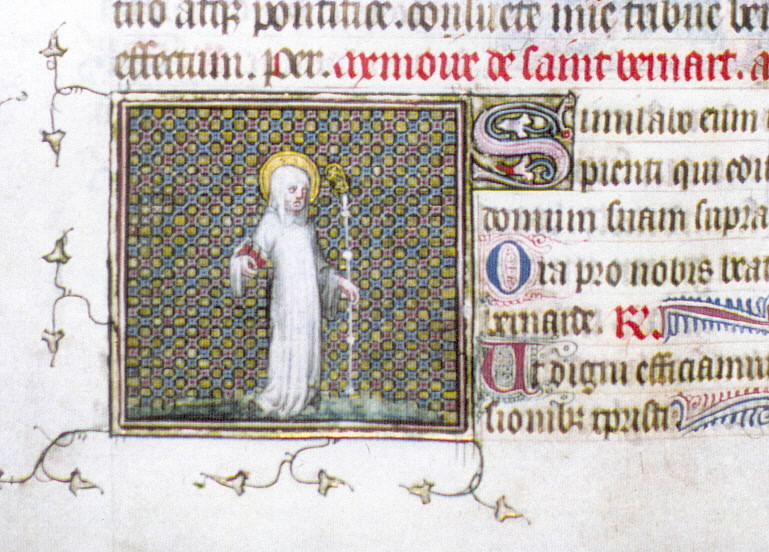 tuo atqz pontifice. consuete mie tribue
effectum. per. a memoire de saint bernart. a
Similabo eum
pienti qui edi
domum suam supra
Ora pro nobis beat
bernarde. R.
Ut digni efficiamur
sionibz christi